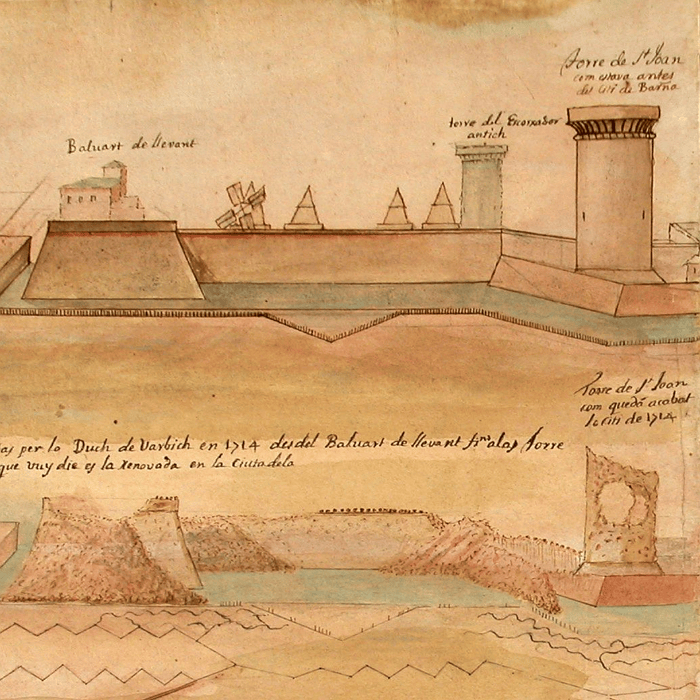 Torre de St Joan
com estava antes
del siti de Barña
torre del Escorxador
antich
Baluart de llevant
Torre de St Joan
com quedá acabat
lo siti de 1714
as per lo Duch de Varbich en 1714 desdel Baluart de llevant fins a las Torre
que vuy die es la Renovada en la Ciutadela